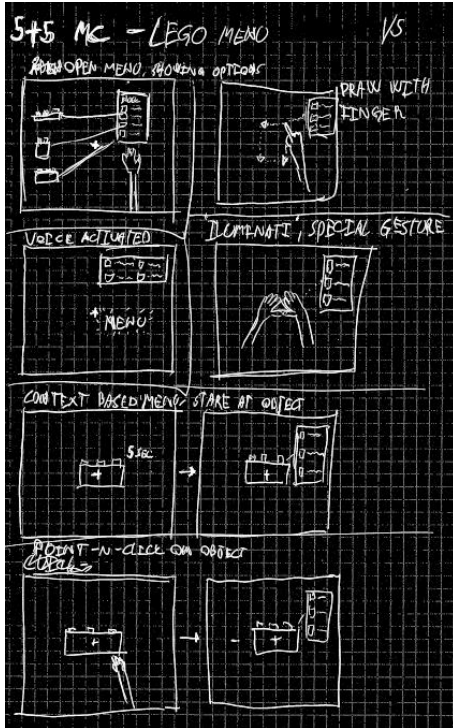 5+5 MC - LEGO MENU 1/5
OPEN MENU, SHOWING OPTIONS
DRAW WITH
FINGER
VOICE ACTIVATED
"ILUMINATI", SPECIAL GESTURE
"MENU"
CONTEXT BASED MENU, STARE AT OBJECT
5 SEC
POINT-N-CLICK ON OBJECT